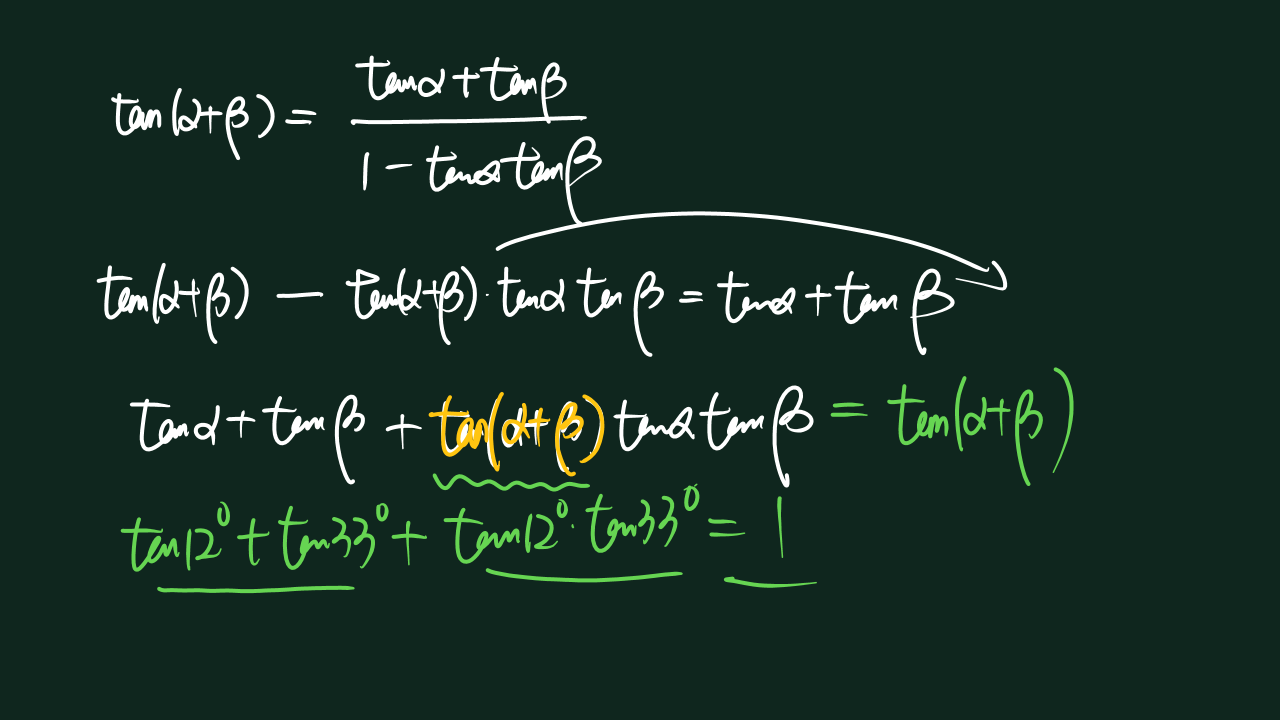 tan(α+β) = (tanα+tanβ)/(1-tanαtanβ)
tan(α+β) - tan(α+β)·tanα tanβ = tanα + tanβ
tanα + tanβ + tan(α+β) tanα tanβ = tan(α+β)
tan12° + tan33° + tan12°·tan33° = 1